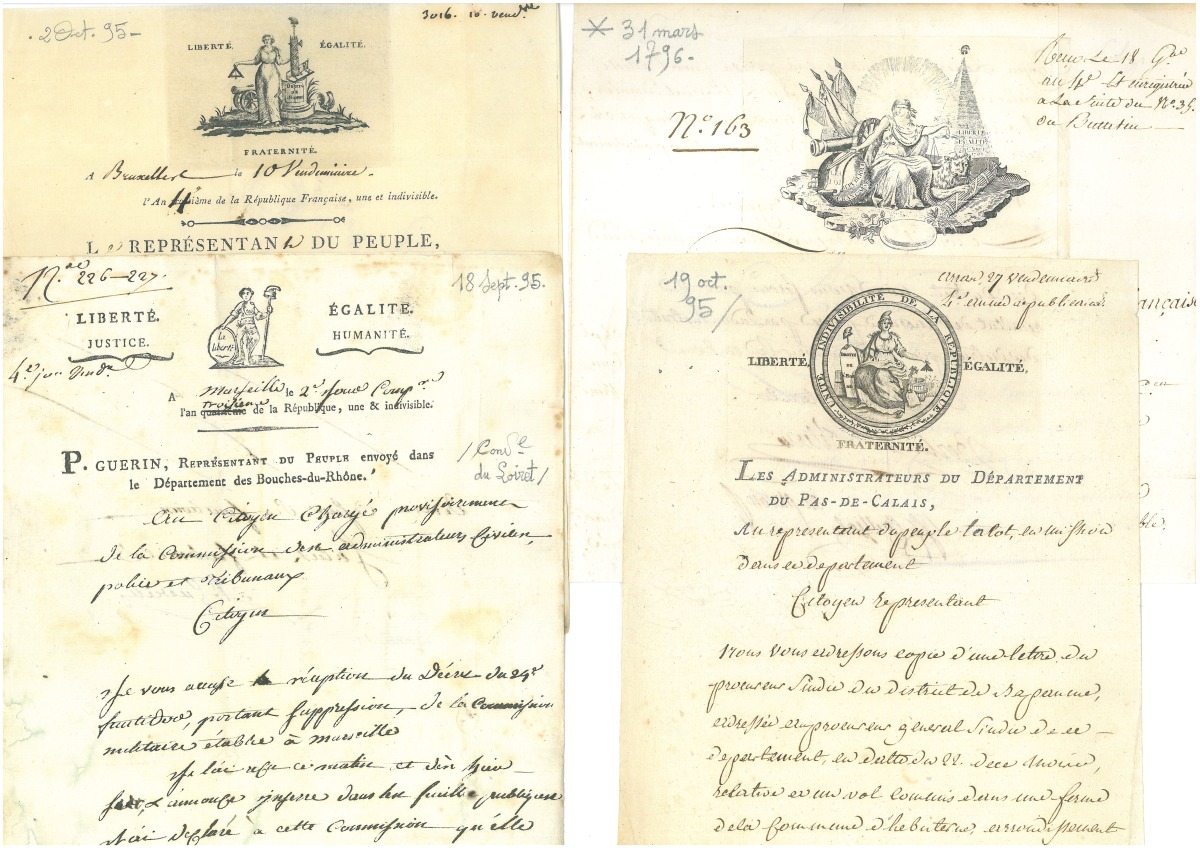 2 Oct. 95-
3016. 10. vend.re
LIBERTÉ. ÉGALITÉ.
FRATERNITÉ.
A Bruxelles le 10 Vendemiaire.
l'An 4e de la République Française, une et indivisible.
REPRÉSENTAN DU PEUPLE,
N.os 226-227.
18 Sept. 95.
LIBERTÉ. ÉGALITÉ.
JUSTICE. HUMANITÉ.
La Liberté
4.e jour
A Marseille le 2e
l'an troisieme quatrième de la République, une & indivisible.
P. GUERIN, REPRÉSENTANT DU PEUPLE envoyé dans
le Département des Bouches-du-Rhône.
/Conv.el
du Loiret/
Au Citoyen Chargé provisoirement
de la Commission des administrateurs Civiles,
police et tribunaux
Citoyen
Je vous accuse réception du Décret du 29e
fructidor, portant suppression, de la Commission
militaire établie à Marseille
Je l'ai reçu ce matin et dès hier
annonce inserée dans les feuilles publiques
J'ai déclaré à cette Commission qu'elle
* 31 mars
1796-
N.o 163
Reçu Le 18
au 4e Et enregistrée
a La suite du No. 35
du Bulletin
LIBERTÉ
ÉGALITÉ
19 oct.
95/
arras 27 vendemiaire
4.e année republicaine
UNITÉ INDIVISIBILITÉ DE LA RÉPUBLIQUE
LIBERTÉ. ÉGALITÉ.
FRATERNITÉ.
LES ADMINISTRATEURS DU DÉPARTEMENT
DU PAS-DE-CALAIS,
Au representant du peuple talot, en mission
dans ce departement
Citoyen representant
Nous vous adressons copie d'une lettre du
procureur sindic du district de Bapaume,
adressée au procureur general sindic de ce
departement, en datte du 22. de ce mois,
relative a un vol commis dans une ferme
de la Commune d'hebuterne, arrondissement